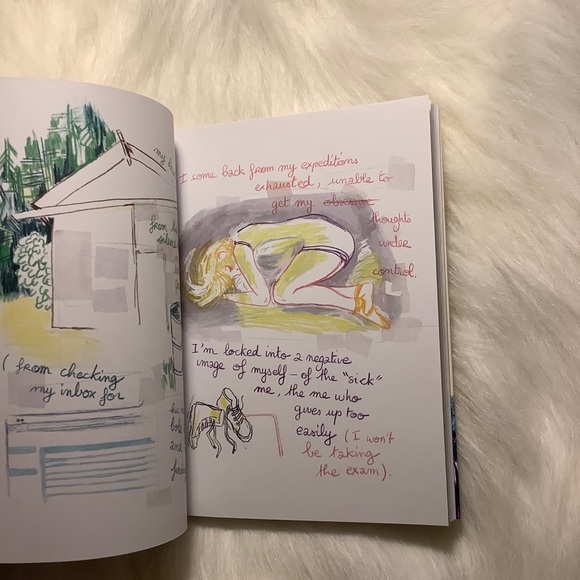 my
from
silen
( from checking
my inbox for
I come back from my expeditions
exhausted, unable to
get my obscene
thoughts
under
control.
I'm locked into a negative
image of myself – of the "sick"
me, the me who
gives up too
easily (I won't
be taking
the exam).